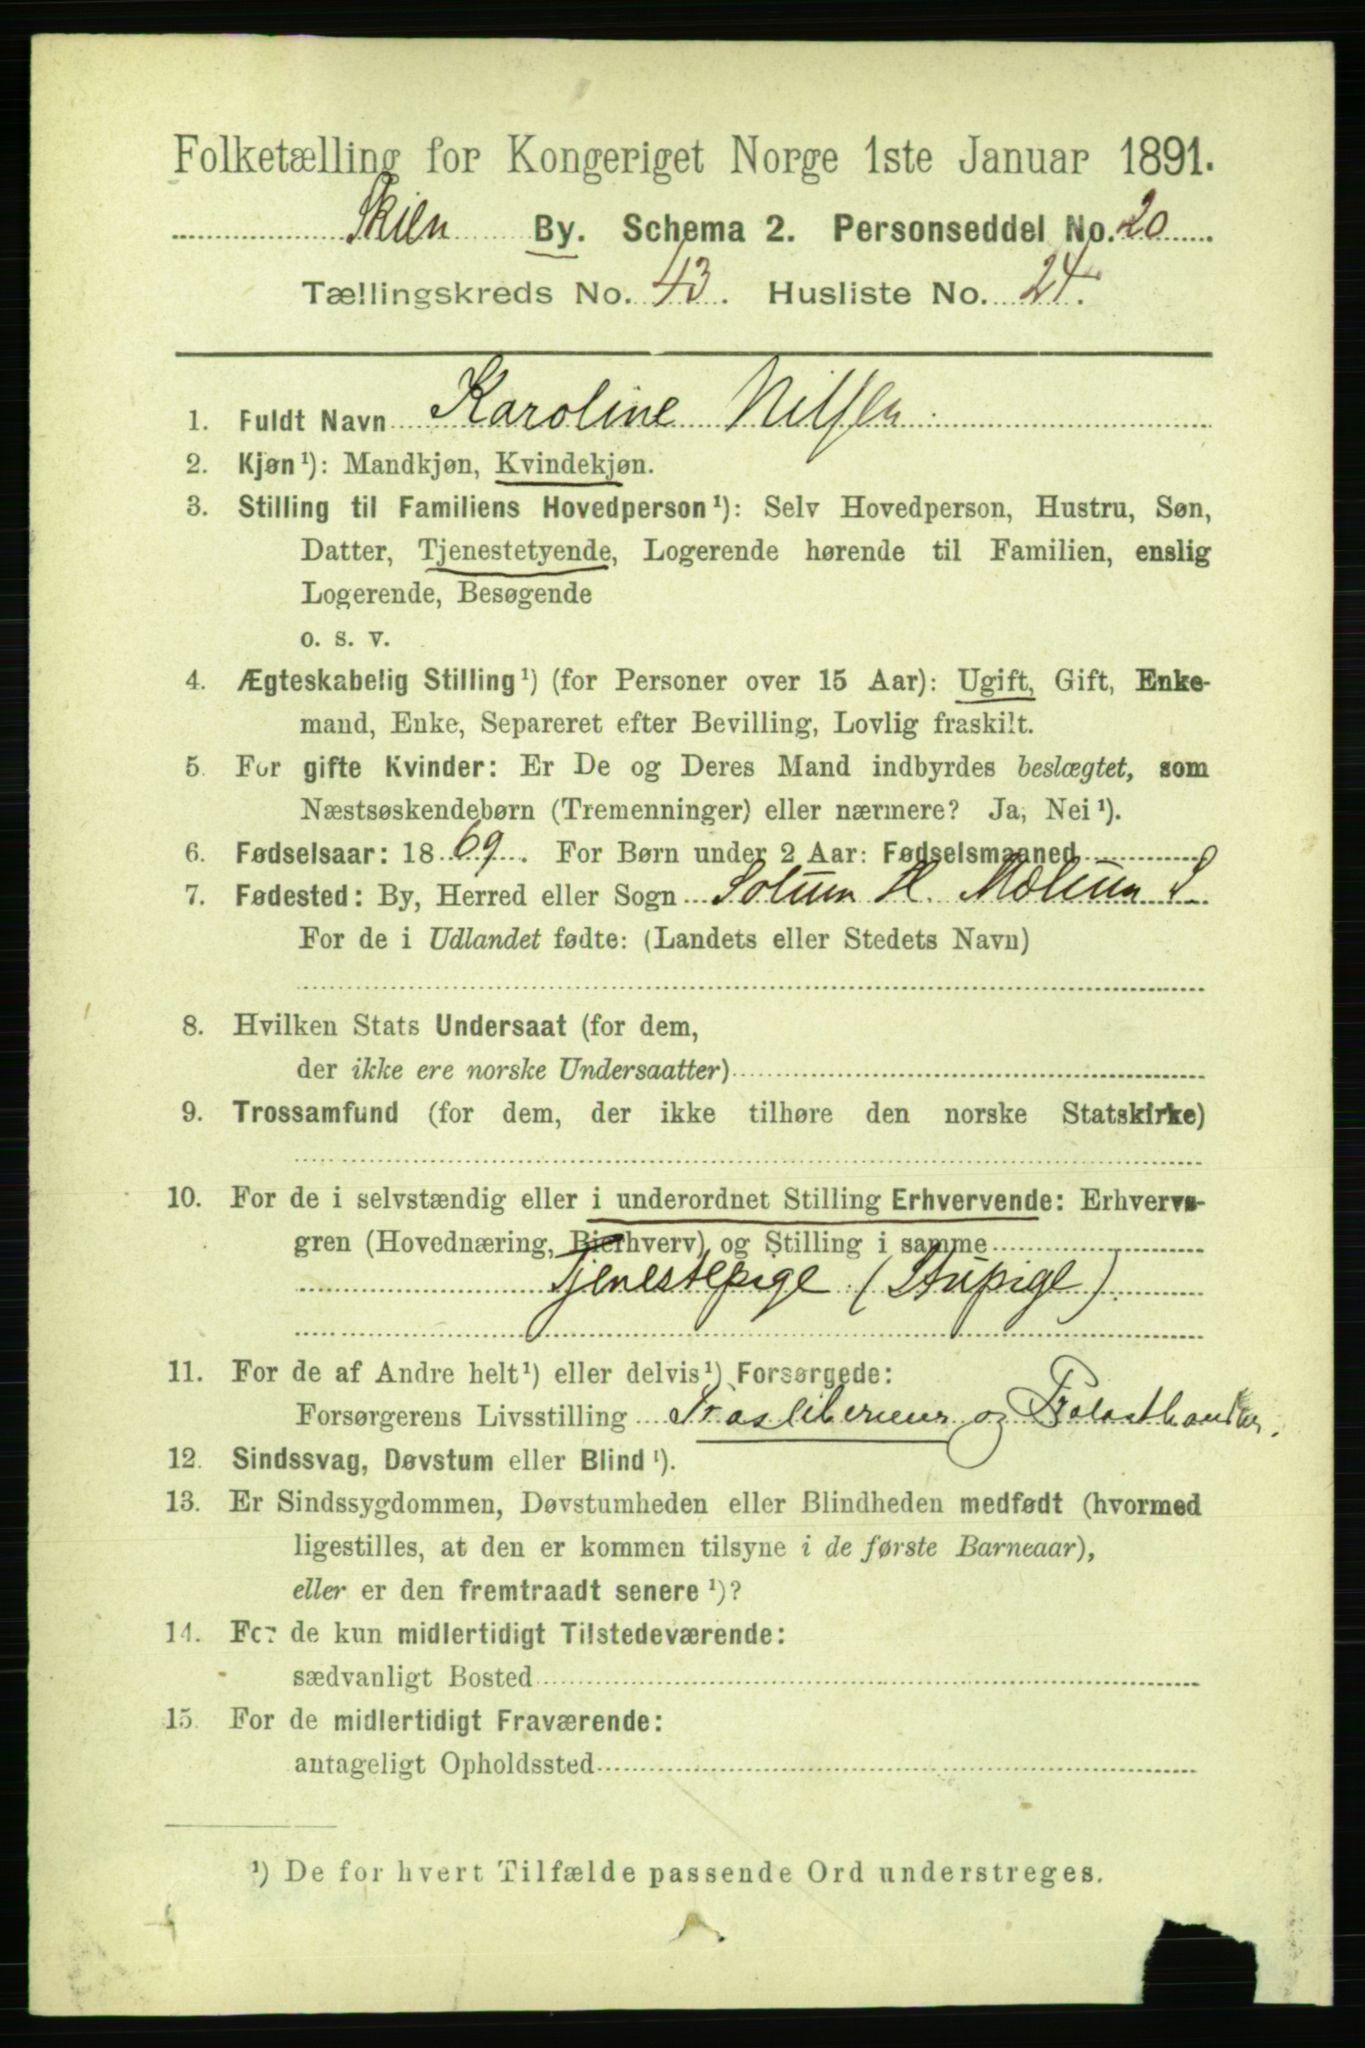 Folketælling for Kongeriget Norge 1ste Januar 1891.
Skien By. Schema 2. Personseddel No. 20
Tællingskreds No. 43. Husliste No. 24.
1. Fuldt Navn Karoline Nilsen
2. Kjøn¹): Mandkjøn, Kvindekjøn.
3. Stilling til Familiens Hovedperson¹): Selv Hovedperson, Hustru, Søn,
Datter, Tjenestetyende, Logerende hørende til Familien, enslig
Logerende, Besøgende
o. s. v.
4. Ægteskabelig Stilling¹) (for Personer over 15 Aar): Ugift, Gift, Enke-
mand, Enke, Separeret efter Bevilling, Lovlig fraskilt.
5. For gifte Kvinder: Er De og Deres Mand indbyrdes beslægtet, som
Næstsøskendebørn (Tremenninger) eller nærmere? Ja, Nei¹).
6. Fødselsaar: 1869. For Børn under 2 Aar: Fødselsmaaned
7. Fødested: By, Herred eller Sogn Solum H. Mælum S
For de i Udlandet fødte: (Landets eller Stedets Navn)
8. Hvilken Stats Undersaat (for dem,
der ikke ere norske Undersaatter)
9. Trossamfund (for dem, der ikke tilhøre den norske Statskirke)
10. For de i selvstændig eller i underordnet Stilling Erhvervende: Erhvervs-
gren (Hovednæring, Bierhverv) og Stilling i samme
Tjenestepige (Stupige).
11. For de af Andre helt¹) eller delvis¹) Forsørgede:
Forsørgerens Livsstilling og
12. Sindssvag, Døvstum eller Blind¹).
13. Er Sindssygdommen, Døvstumheden eller Blindheden medfødt (hvormed
ligestilles, at den er kommen tilsyne i de første Barneaar),
eller er den fremtraadt senere¹)?
14. For de kun midlertidigt Tilstedeværende:
sædvanligt Bosted
15. For de midlertidigt Fraværende:
antageligt Opholdssted
¹) De for hvert Tilfælde passende Ord understreges.